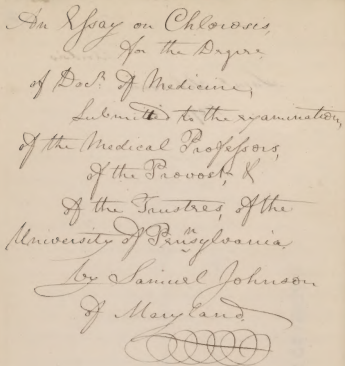 An Essay on Chlorosis,
for the Degree
of Doct. of Medicine,
Submitted to the examination,
of the Medical Professors,
of the Provost, &
of the Trustees, of the
University of Pennsylvania,
by Samuel Johnson
of Maryland.